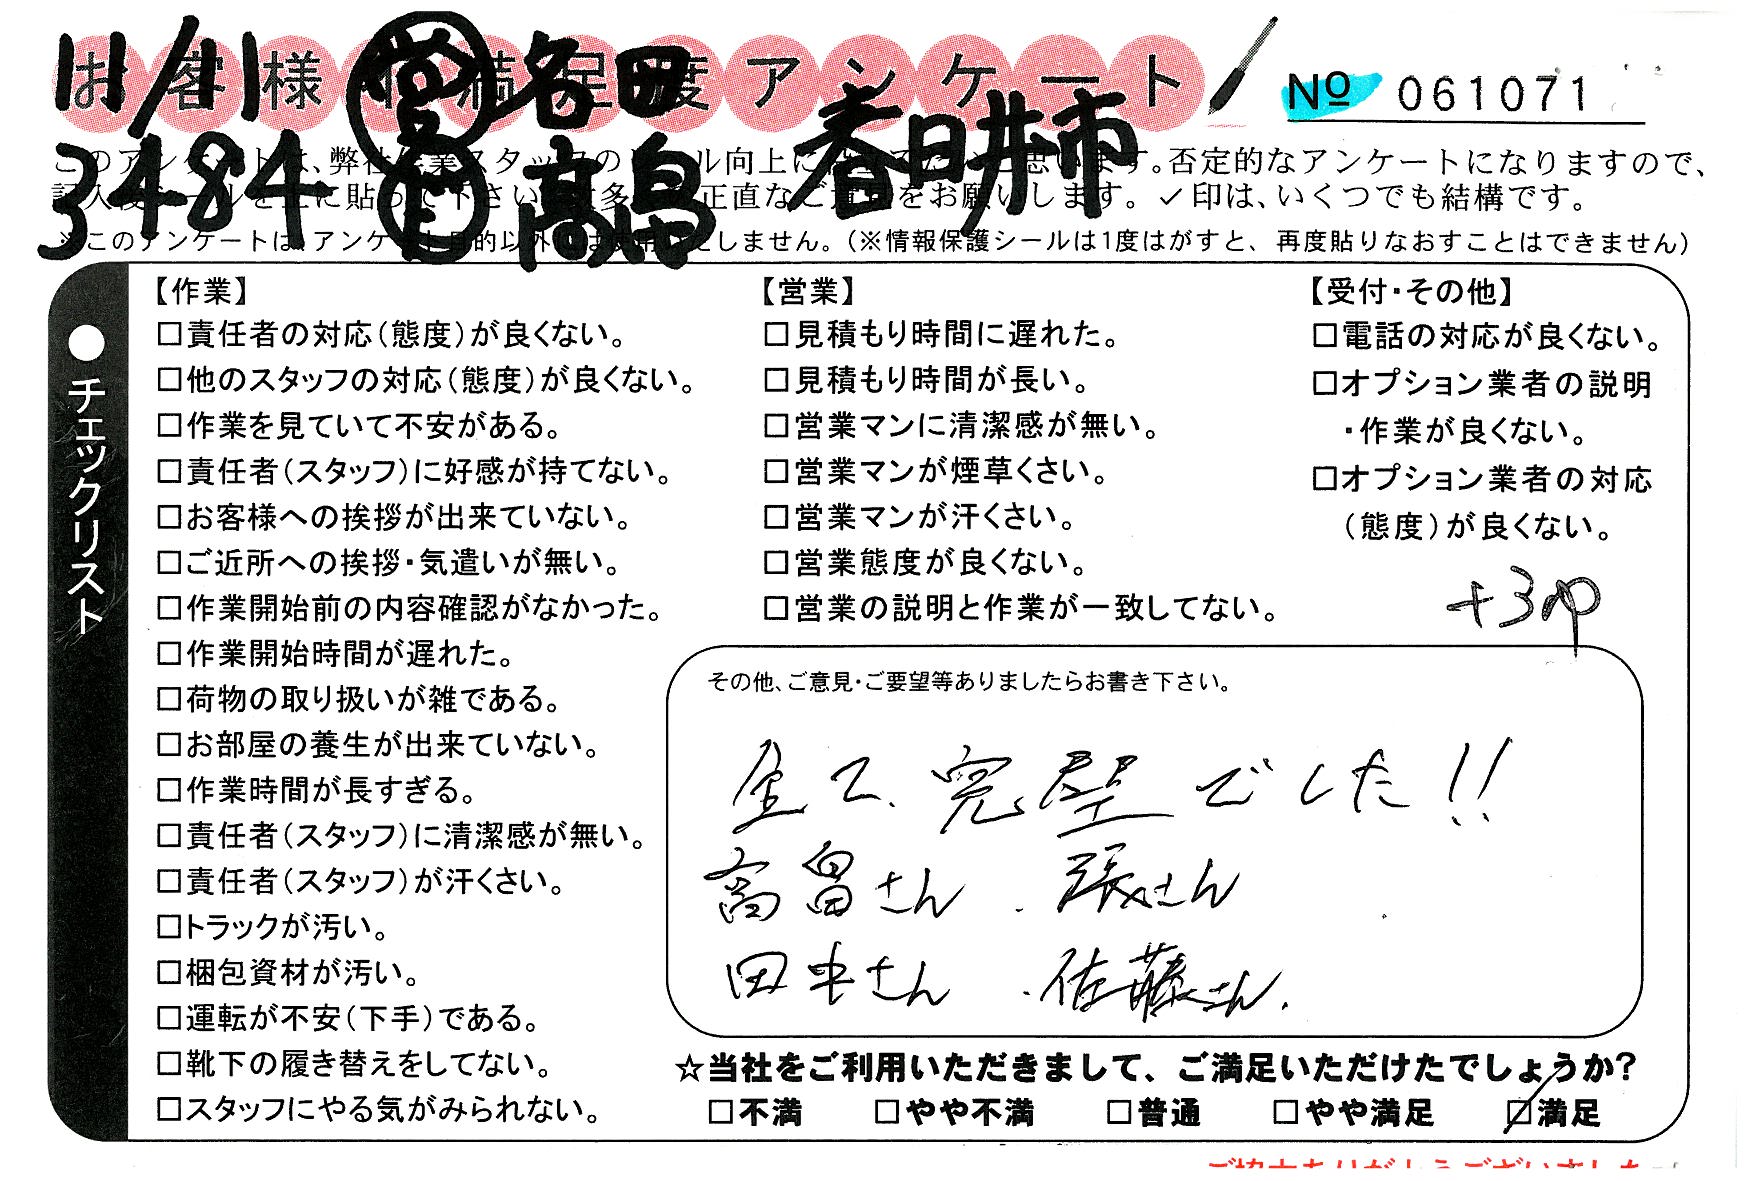 11/11 営 名田
お客様不満足度アンケート
№ 061071
3484 高畠 春日井市
このアンケートは、弊社作業スタッフのレベル向上に思います。否定的なアンケートになりますので、
記入後シールを上に貼って下さい。正直なご意見をお願いします。✓印は、いくつでも結構です。
※このアンケートは、アンケート目的以外には使用いたしません。(※情報保護シールは1度はがすと、再度貼りなおすことはできません)
●チェックリスト
【作業】
□責任者の対応(態度)が良くない。
□他のスタッフの対応(態度)が良くない。
□作業を見ていて不安がある。
□責任者(スタッフ)に好感が持てない。
□お客様への挨拶が出来ていない。
□ご近所への挨拶・気遣いが無い。
□作業開始前の内容確認がなかった。
□作業開始時間が遅れた。
□荷物の取り扱いが雑である。
□お部屋の養生が出来ていない。
□作業時間が長すぎる。
□責任者(スタッフ)に清潔感が無い。
□責任者(スタッフ)が汗くさい。
□トラックが汚い。
□梱包資材が汚い。
□運転が不安(下手)である。
□靴下の履き替えをしてない。
□スタッフにやる気がみられない。
【営業】
□見積もり時間に遅れた。
□見積もり時間が長い。
□営業マンに清潔感が無い。
□営業マンが煙草くさい。
□営業マンが汗くさい。
□営業態度が良くない。
□営業の説明と作業が一致してない。
【受付・その他】
□電話の対応が良くない。
□オプション業者の説明
・作業が良くない。
□オプション業者の対応
(態度)が良くない。
+3p
その他、ご意見・ご要望等ありましたらお書き下さい。
全て、完璧でした!!
高畠さん . 張さん
田中さん . 佐藤さん.
☆当社をご利用いただきまして、ご満足いただけたでしょうか?
□不満 □やや不満 □普通 □やや満足 ☑満足
ご協力ありがとうございました